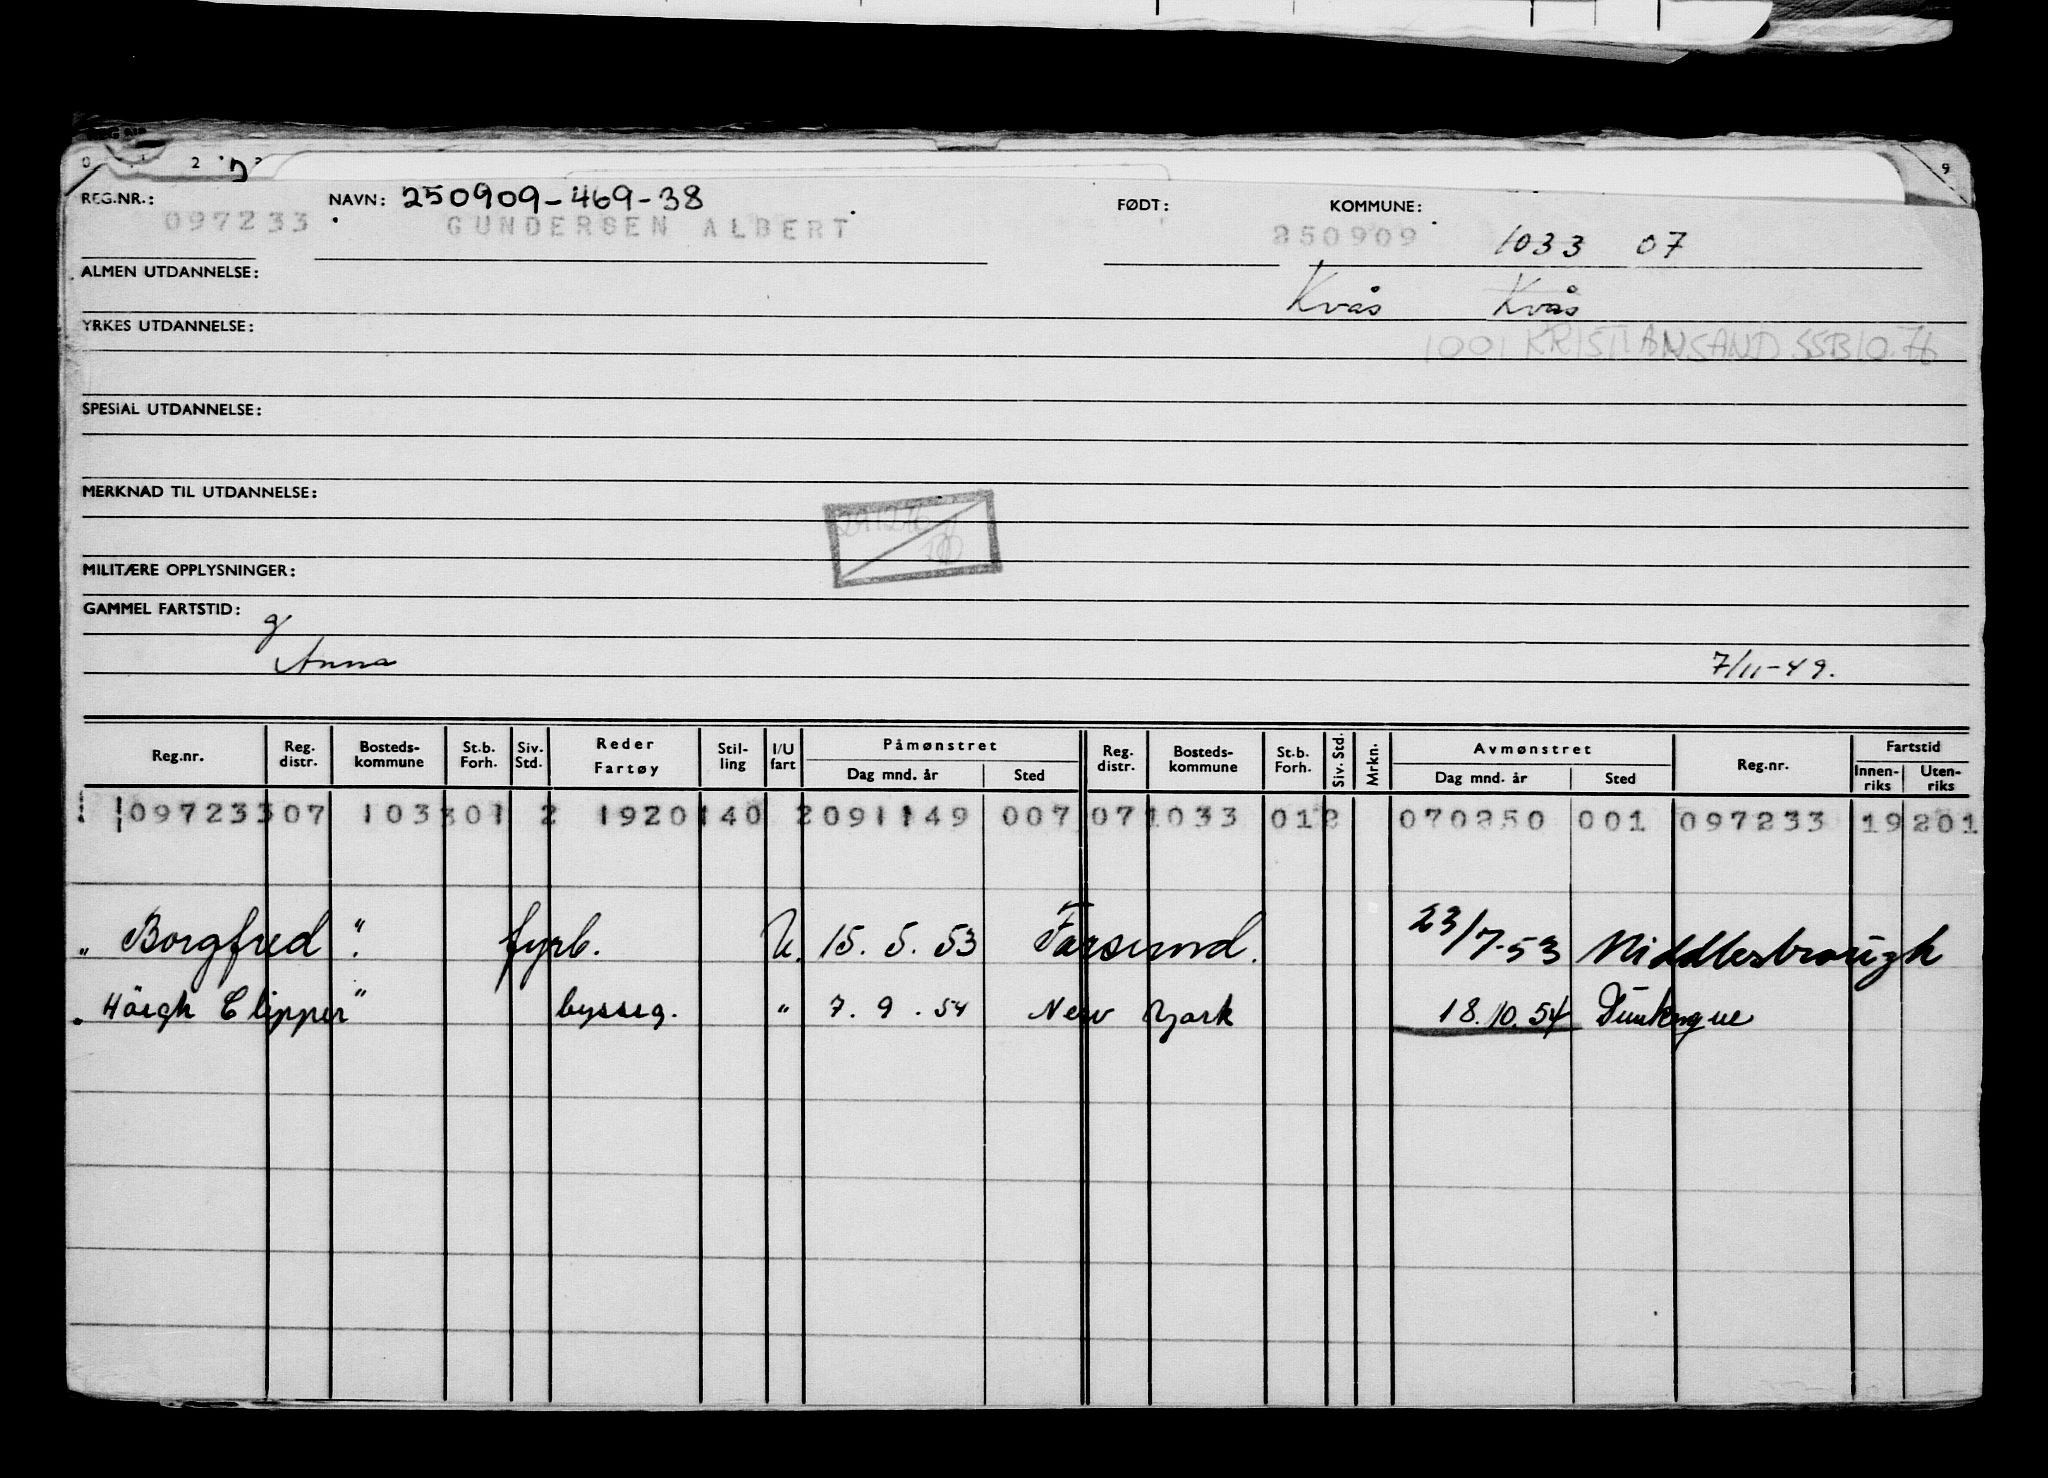 REG.NR.: NAVN: 250909-469-38 FØDT: KOMMUNE:
097233 GUNDERSEN ALBERT 250909 1033 07
ALMEN UTDANNELSE: Kvås Kvås
YRKES UTDANNELSE: 1001 KRISTIANSAND SSB 10.76
SPESIAL UTDANNELSE:
MERKNAD TIL UTDANNELSE:
MILITÆRE OPPLYSNINGER:
GAMMEL FARTSTID:
g
Anna 7/11-49.
Reg.nr. Reg. distr. Bosteds-kommune St.b. Forh. Siv. Std. Reder Fartøy Stil-ling I/U fart Påmønstret Dag mnd. år Sted Reg. distr. Bosteds-kommune St.b. Forh. Siv. Std. Mrkn. Avmønstret Dag mnd. år Sted Reg.nr. Fartstid Innen-riks Uten-riks
097233 07 1033 01 2 1920 140 2 091149 007 07 1033 01 2 070250 001 097233 19 201
" Borgfred ". fyrb. U. 15. 5. 53 Farsund. 23/7-53 Middlesbrough
Höegh Clipper " bysseg. " 7. 9. 54 New York 18.10.54 Dunkerque